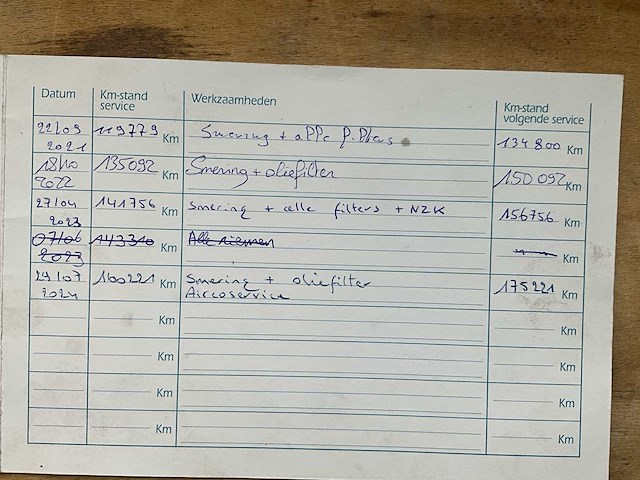 Datum Km-stand service Werkzaamheden Km-stand volgende service
22/09 2021 119779 Km Smering + alle filters 134800 Km
18/10 2022 135092 Km Smering + oliefilter 150092 Km
27/04 2023 141756 Km smering + alle filters + NZK 156756 Km
07/06 2023 143310 Km Alle riemen Km
29/07 2024 160221 Km smering + oliefilter 175221 Km
Aircoservice
Km Km
Km Km
Km Km
Km Km